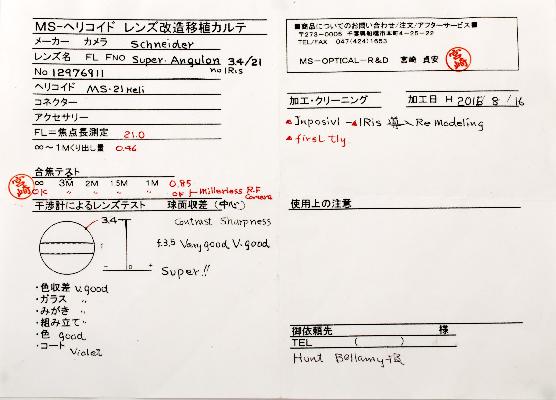 MS-ヘリコイド レンズ改造移植カルテ
メーカー カメラ Schneider
レンズ名 FL FNO Super. Angulon 3.4/21
No 12976911 no IRis
ヘリコイド MS-21 Heli
コネクター
アクセサリー
FL=焦点長測定 21.0
∞~1Mくり出し量 0.46
合焦テスト
∞ 3M 2M 1.5M 1M 0.85
OK 〃 〃 〃 〃 OK Millerless R.F Camera
干渉計によるレンズテスト 球面収差(中心)
3.4 Contrast Sharpness
f.3.5 Very good V.good
Super!!
・色収差 V.good
・ガラス 〃
・みがき 〃
・組み立て 〃
・色 good
・コート Violet
■商品についてのお問い合わせ/注文/アフターサービス■
〒273-0005 千葉県船橋市本町4-25-22
TEL/FAX 047(424)1653
MS-OPTICAL-R&D 宮崎 貞安
宮崎
加工・クリーニング 加工日 H 2016 8/16
Inposivl → IRis 導入 Remodeling
firstTly
使用上の注意
御依頼先 様
TEL ( )
Hunt Bellamy 様